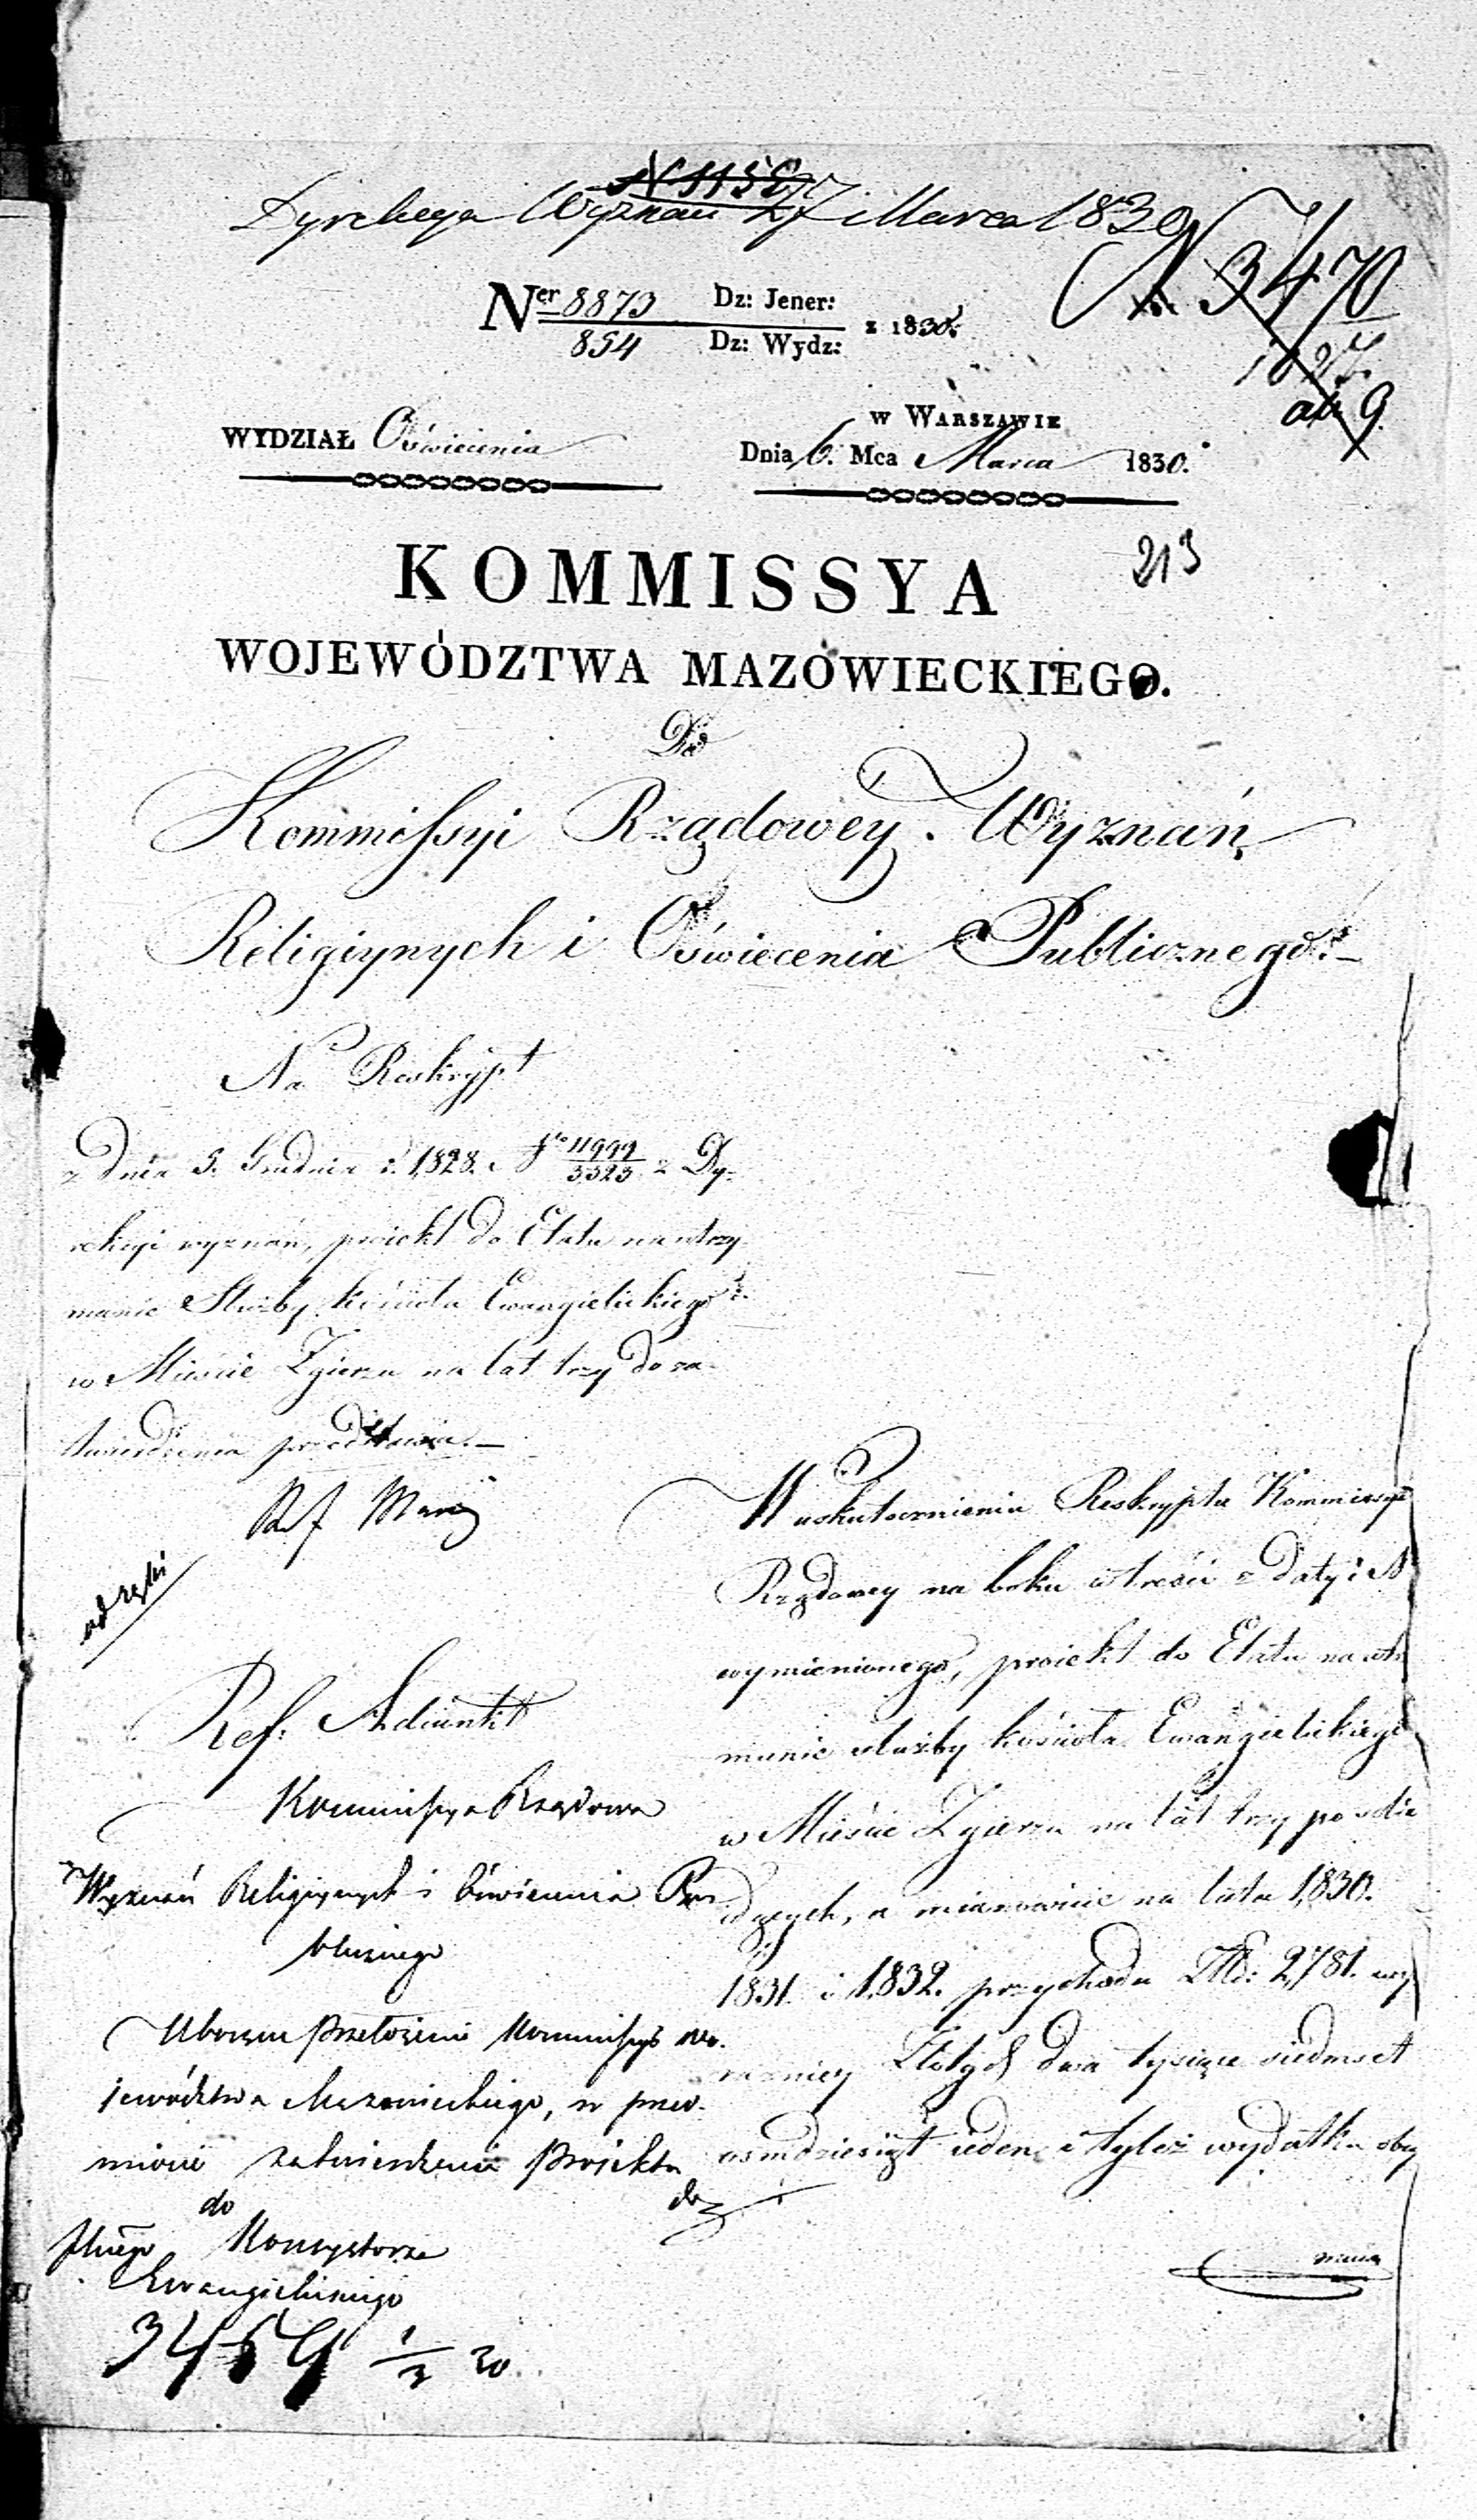 Dyrekcya Wyznań 27 Marca 1830
N 3470
Ner 8873 Dz: Jener:
854 Dz: Wydz: z 1830.
WYDZIAŁ Oświecenia
w WARSZAWIE
Dnia 6. Mca Marca 1830.
213
KOMMISSYA
WOJEWÓDZTWA MAZOWIECKIEGO.
Do
Kommissyi Rządowey Wyznań
Religiynych i Oświecenia Publicznego.
Na Reskrypt
z dnia 5. Grudnia r. 1828. No 11999/3323 z Dy-
rekcyi wyznań, proiekt do Etatu na utrzy-
manie Służby kościoła Ewangielickiego
w Mieście Zgierzu na lat trzy do za-
twierdzenia przedstawia.—
od ręki
Ref. Adiunkt
Kommissya Rządowa
Wyznań Religiynych i Oświecenia Pu-
blicznego
przełożenie Kommissyi Wo-
jewództwa Mazowieckiego, w przed-
miocie zatwierdzenia Proiektu
do
Konsystorza
Ewangielickiego
3459 1/3 30
W uskutecznieniu Reskryptu Kommissyi
Rządowey na boku w treści z daty i N
wymienionego, proiekt do Etatu na utrzy
manie służby kościoła Ewangielickiego
w Mieście Zgierzu na lat trzy po sobie
idących, a mianowicie na lata 1830.
1831. i 1832. przychodu Złd: 2,781. wy
raźniey Złotych dwa tysiące siedmset
osmdziesiąt ieden i tyleż wydatku obey